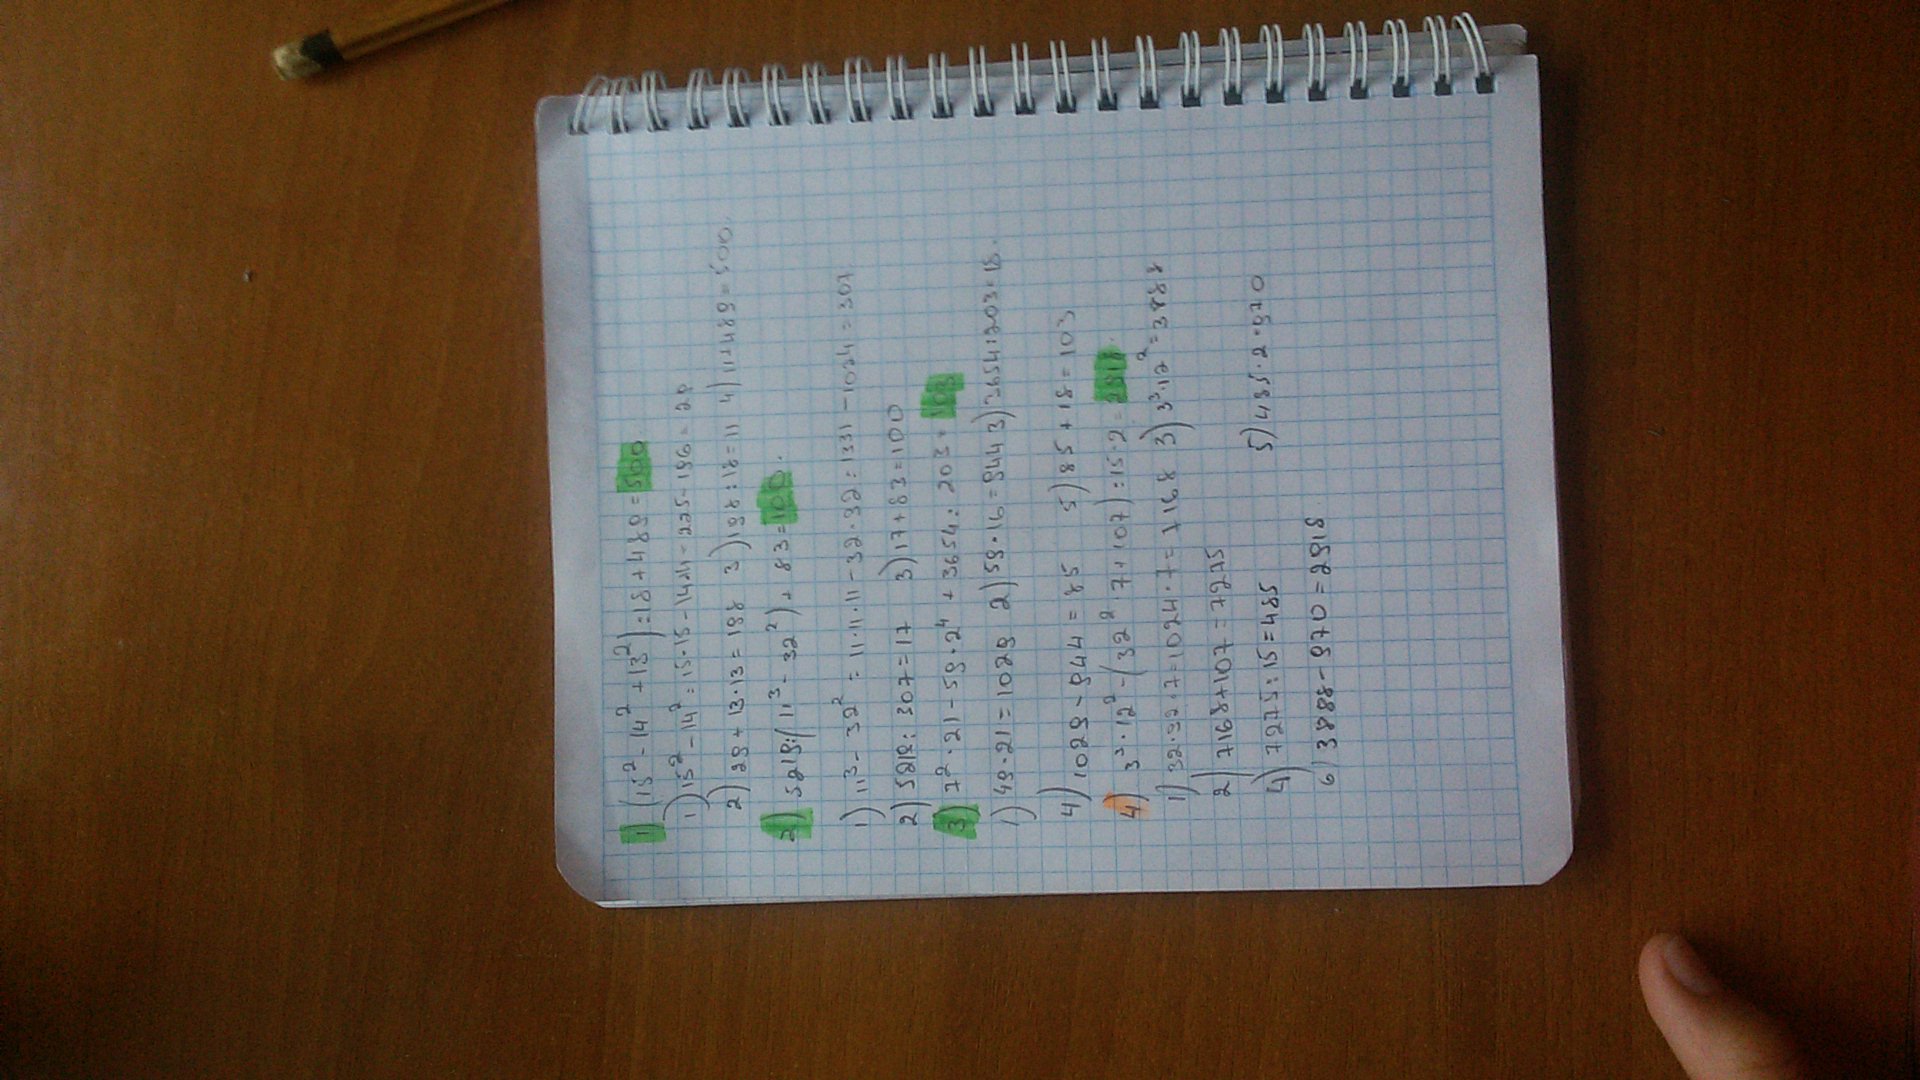 1) (15² - 14² + 13²) : 18 + 489 = 500
1) 15² - 14² = 15·15 - 14·14 = 225 - 196 = 29
2) 29 + 13·13 = 198 3) 198 : 18 = 11 4) 11 + 489 = 500.
2) 5219 : (11³ - 32²) + 83 = 100.
1) 11³ - 32² = 11·11·11 - 32·32 = 1331 - 1024 = 307
2) 5219 : 307 = 17 3) 17 + 83 = 100
3) 7²·21 - 59·2⁴ + 3654 : 203 = 103
1) 49·21 = 1029 2) 59·16 = 944 3) 3654 : 203 = 18.
4) 1029 - 944 = 85 5) 85 + 18 = 103
4) 3³·12² - (32² 7 + 107) : 15·2 = 2918.
1) 32·32·7 = 1024·7 = 7168 3) 3³·12² = 3888
2) 7168 + 107 = 7275
4) 7275 : 15 = 485 5) 485·2 = 970
6) 3888 - 970 = 2918